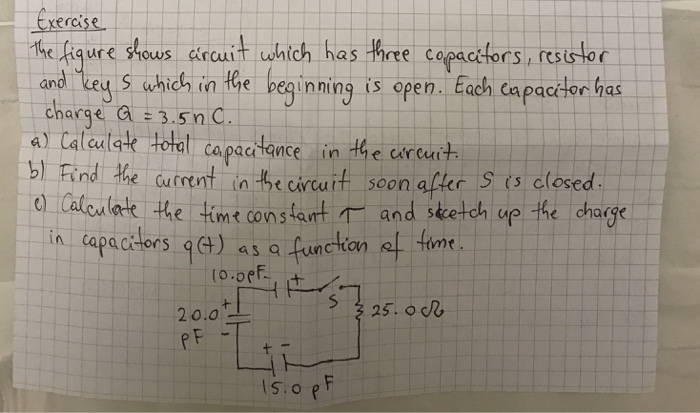 Exercise
The figure shows circuit which has three capacitors, resistor
and key S which in the beginning is open. Each capacitor has
charge Q = 3.5 n C.
a) Calculate total capacitance in the circuit.
b) Find the current in the circuit soon after S is closed.
c) Calculate the time constant τ and sketch up the charge
in capacitors q(t) as a function of time.
10.0pF - +
S
20.0 +
25.0 Ω
pF -
+ -
15.0 pF